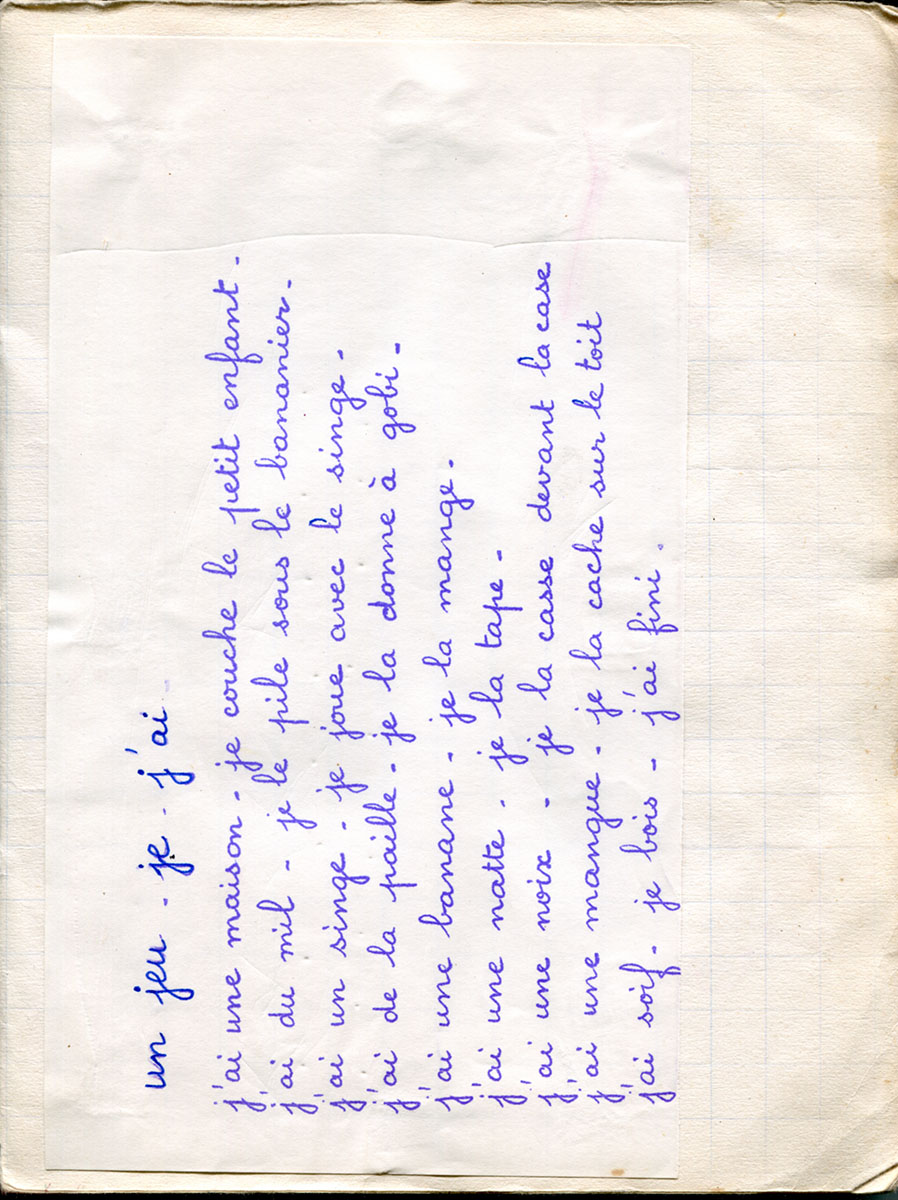 un jeu - je - j'ai -
j'ai une maison - je couche le petit enfant -
j'ai du mil - je le pile sous le bananier -
j'ai un singe - je joue avec le singe -
j'ai de la paille - je la donne à gobi -
j'ai une banane - je la mange -
j'ai une natte - je la tape -
j'ai une noix - je la casse devant la case
j'ai une mangue - je la cache sur le toit
j'ai soif - je bois - j'ai fini.